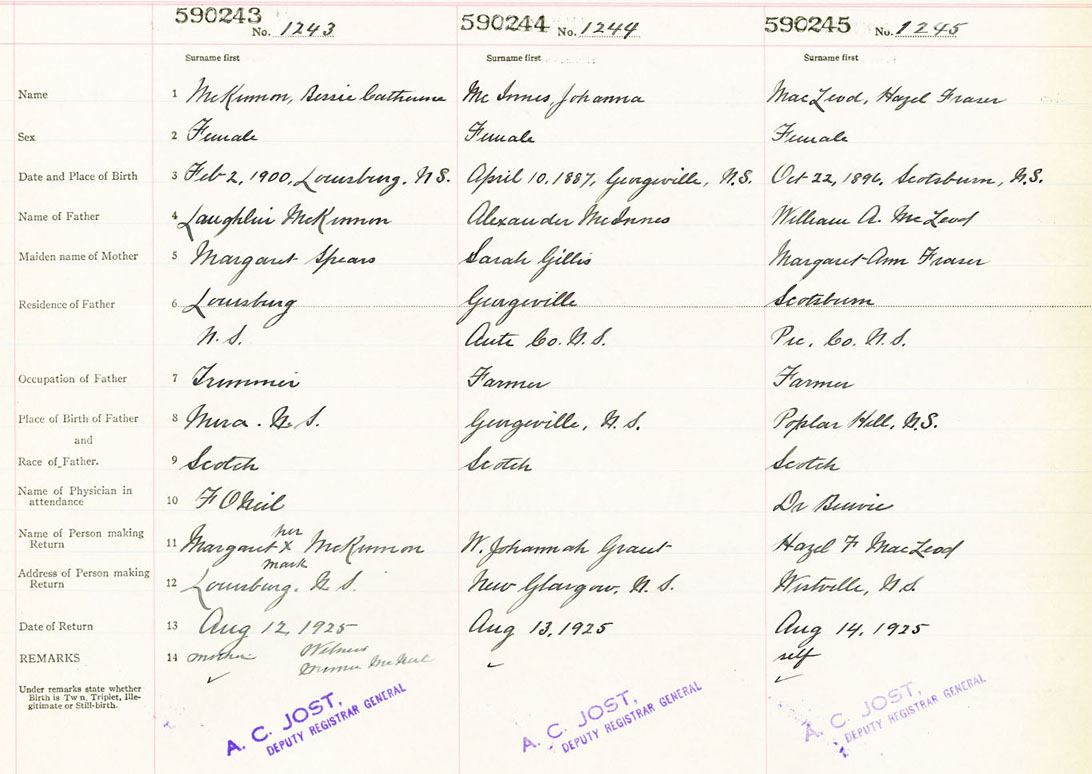 590243 No. 1243 590244 No. 1244 590245 No. 1245
Surname first Surname first Surname first
Name 1 McKinnon, Bessie Catherine Mc Innes, Johanna MacLeod, Hazel Fraser
Sex 2 Female Female Female
Date and Place of Birth 3 Feb 2, 1900, Louisburg, N.S. April 10, 1887, Georgeville, N.S. Oct 22, 1896, Scotsburn, N.S.
Name of Father 4 Laughlin McKinnon Alexander McInnes William A. McLeod
Maiden name of Mother 5 Margaret Spears Sarah Gillis Margaret Ann Fraser
Residence of Father 6 Louisburg Georgeville Scotsburn
N.S. Co. N.S. Pic. Co. N.S.
Occupation of Father 7 Trimmer Farmer Farmer
Place of Birth of Father 8 Mira. N.S. Georgeville, N.S. Poplar Hill, N.S.
and
Race of Father. 9 Scotch Scotch Scotch
Name of Physician in
attendance 10 F O'Neil Dr
Name of Person making her
Return 11 Margaret X McKinnon W. Johannah Grant Hazel F MacLeod
mark
Address of Person making
Return 12 Louisburg. N.S. New Glasgow, N.S. Westville, N.S.
Date of Return 13 Aug 12, 1925 Aug 13, 1925 Aug 14, 1925
REMARKS 14 mother Witness self
Minnie
Under remarks state whether
Birth is Tw n, Triplet, Ille-
gitimate or Still-birth.
A. C. JOST, A. C. JOST, A. C. JOST,
DEPUTY REGISTRAR GENERAL DEPUTY REGISTRAR GENERAL DEPUTY REGISTRAR GENERAL